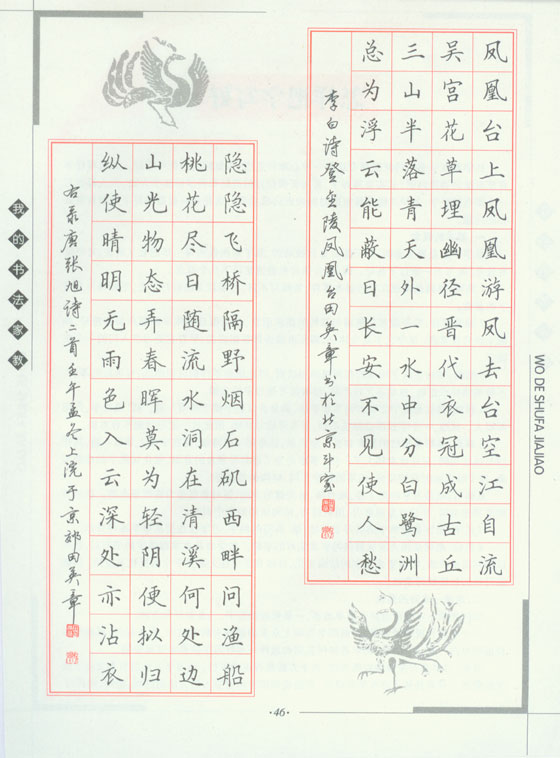 凤凰台上凤凰游凤去台空江自流
吴宫花草埋幽径晋代衣冠成古丘
三山半落青天外一水中分白鹭洲
总为浮云能蔽日长安不见使人愁
李白诗登金陵凤凰台田英章书於北京斗室
隐隐飞桥隔野烟石矶西畔问渔船
桃花尽日随流水洞在清溪何处边
山光物态弄春晖莫为轻阴便拟归
纵使晴明无雨色入云深处亦沾衣
右录唐张旭诗二首壬午孟冬上浣于京郊田英章
我的书法家教
WO DE SHUFA JIAJIAO
·46·